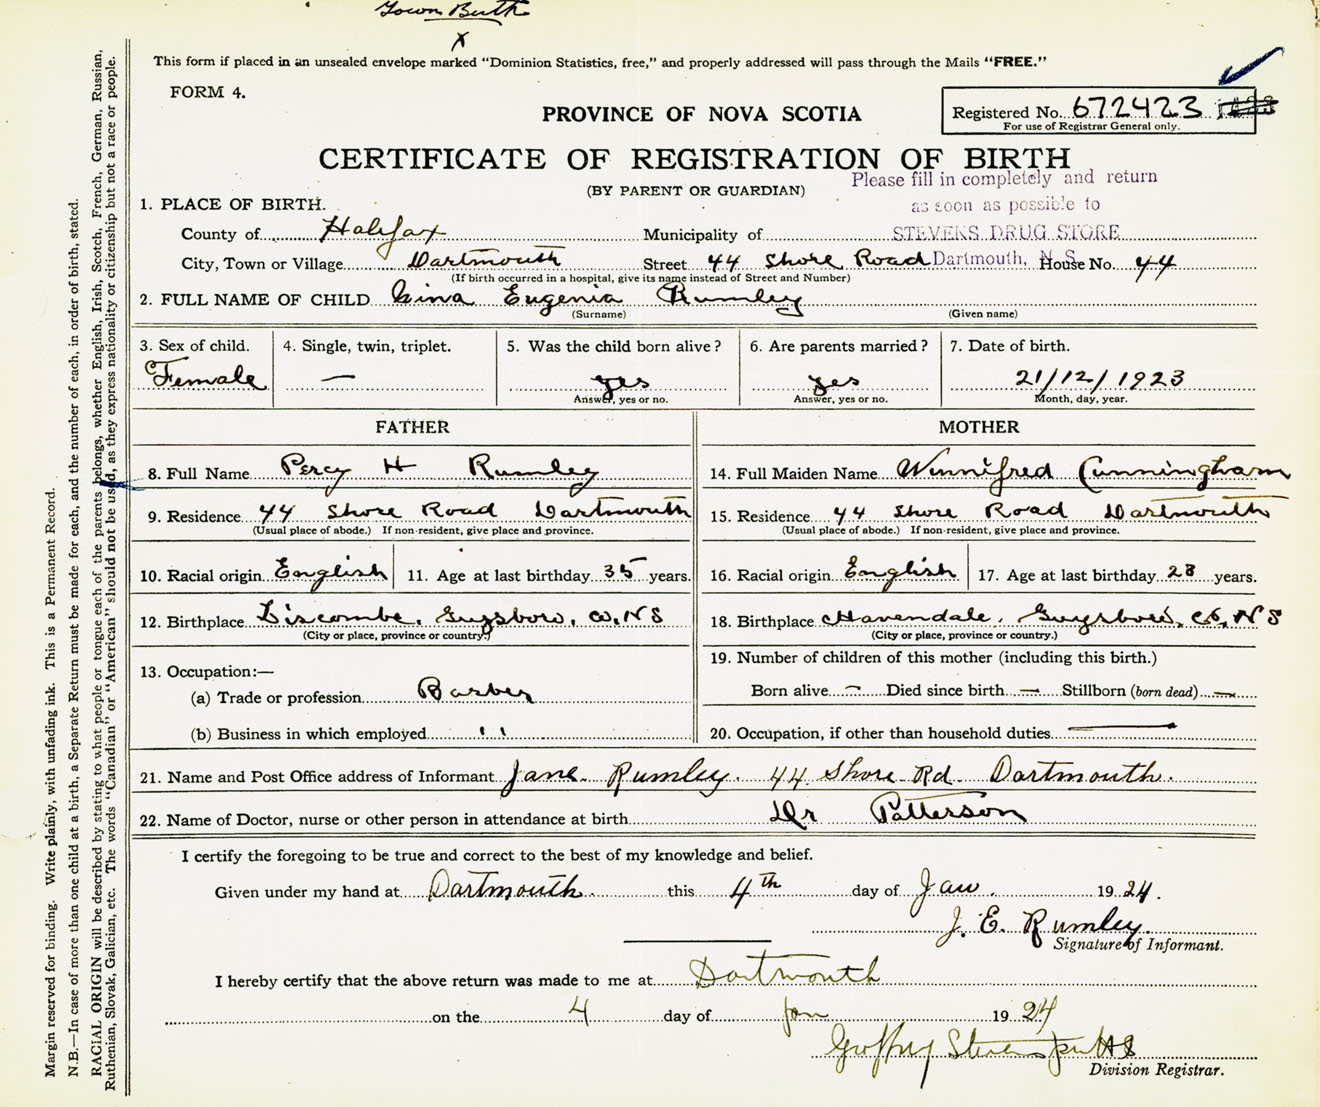 Town Birth
X
This form if placed in an unsealed envelope marked "Dominion Statistics, free," and properly addressed will pass through the Mails "FREE."
FORM 4.
PROVINCE OF NOVA SCOTIA
Registered No. 672423
For use of Registrar General only.
CERTIFICATE OF REGISTRATION OF BIRTH
(BY PARENT OR GUARDIAN)
Please fill in completely and return
as soon as possible to
STEVENS DRUG STORE
Dartmouth, N. S.
1. PLACE OF BIRTH.
County of Halifax Municipality of
City, Town or Village Dartmouth Street 44 Shore Road House No. 44
(If birth occurred in a hospital, give its name instead of Street and Number)
2. FULL NAME OF CHILD Eugenia Rumley
(Surname) (Given name)
3. Sex of child. 4. Single, twin, triplet. 5. Was the child born alive? 6. Are parents married? 7. Date of birth.
Female — yes yes 21/12/1923
Answer, yes or no. Answer, yes or no. Month, day, year.
FATHER MOTHER
8. Full Name Percy H Rumley 14. Full Maiden Name Winnifred Cunningham
9. Residence 44 Shore Road Dartmouth 15. Residence 44 Shore Road Dartmouth
(Usual place of abode.) If non-resident, give place and province. (Usual place of abode.) If non-resident, give place and province.
10. Racial origin English 11. Age at last birthday 35 years. 16. Racial origin English 17. Age at last birthday 28 years.
12. Birthplace Liscombe, Guysboro, Co, NS 18. Birthplace Havendale, Guysboro, Co, NS
(City or place, province or country.) (City or place, province or country.)
13. Occupation:— 19. Number of children of this mother (including this birth.)
(a) Trade or profession Barber Born alive — Died since birth — Stillborn (born dead) —
(b) Business in which employed " 20. Occupation, if other than household duties —
21. Name and Post Office address of Informant Jane Rumley. 44 Shore Rd. Dartmouth.
22. Name of Doctor, nurse or other person in attendance at birth Dr Patterson
I certify the foregoing to be true and correct to the best of my knowledge and belief.
Given under my hand at Dartmouth. this 4th day of Jan. 1924.
J. E. Rumley.
Signature of Informant.
I hereby certify that the above return was made to me at Dartmouth
on the 4 day of Jan 1924
Geoffrey Stevens
Division Registrar.
Margin reserved for binding. Write plainly, with unfading ink. This is a Permanent Record.
N.B.—In case of more than one child at a birth, a Separate Return must be made for each, and the number of each, in order of birth, stated.
RACIAL ORIGIN will be described by stating to what people or tongue each of the parents belongs, whether English, Irish, Scotch, French, German, Russian,
Ruthenian, Slovak, Galician, etc. The words "Canadian" or "American" should not be used, as they express nationality or citizenship but not a race or people.